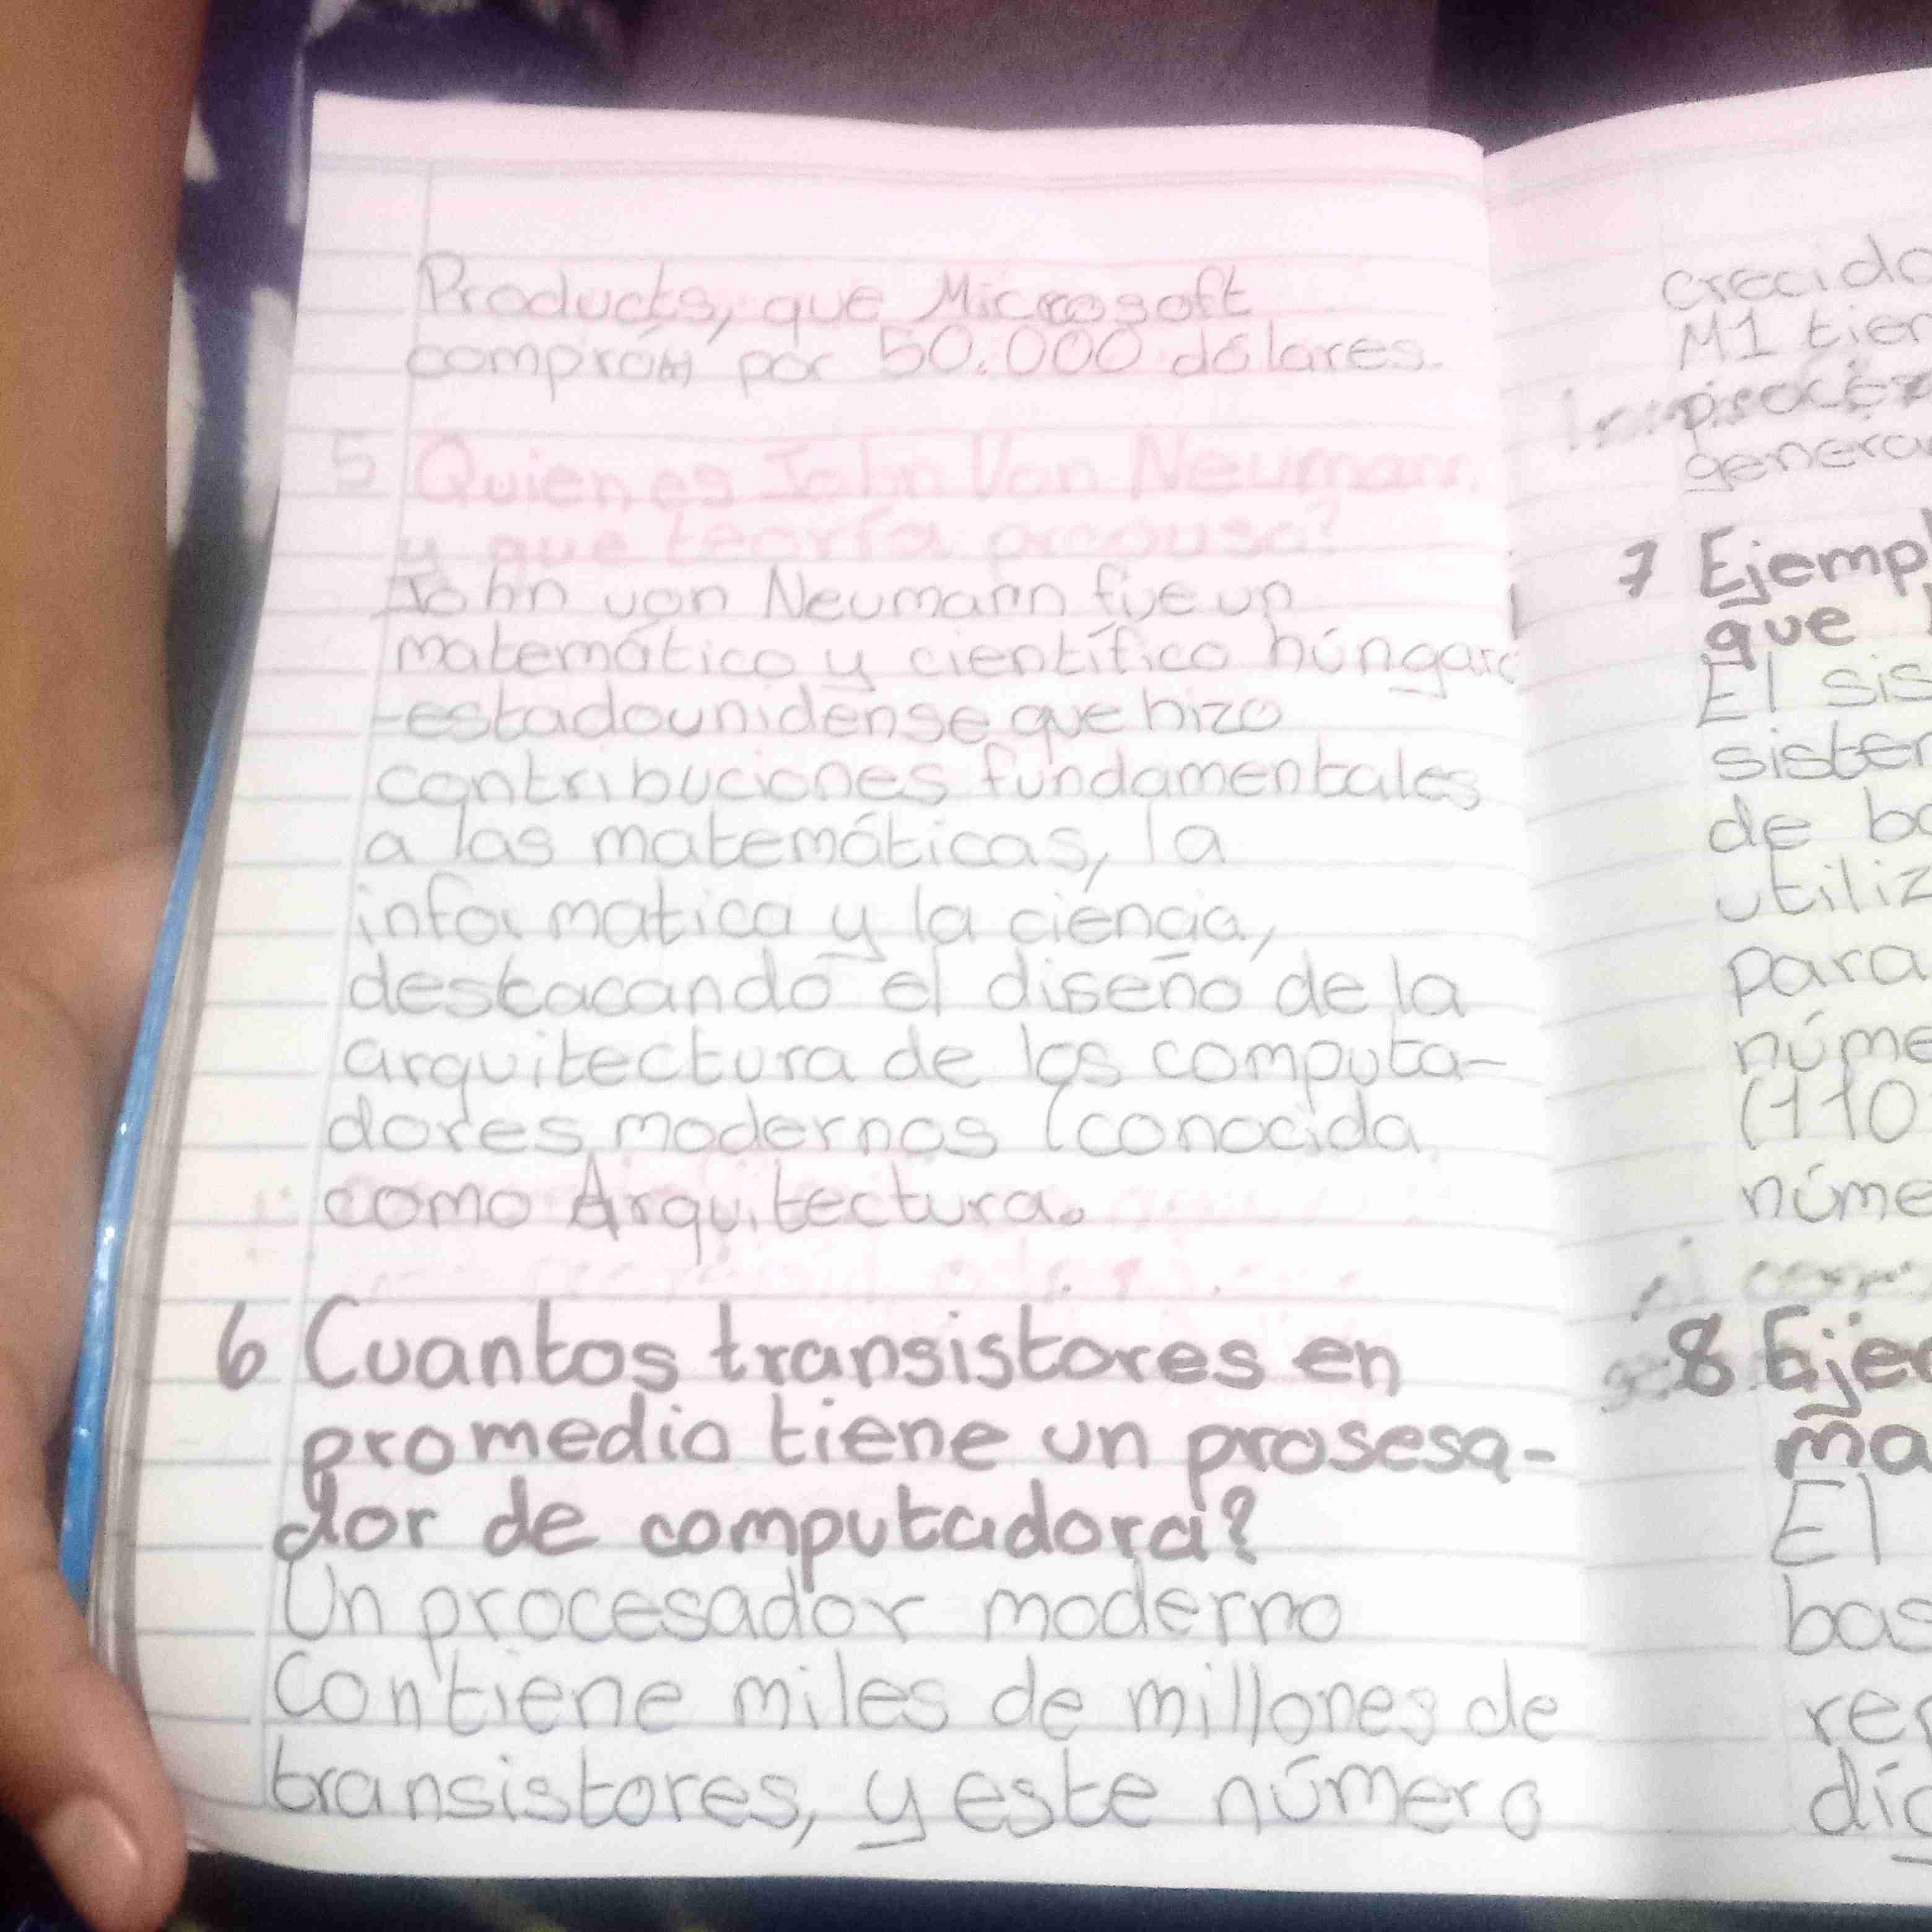 Products, que Microsoft
compró por 50.000 dólares.
5 Quien es John Von Neumann
y que teoría propuso?
John von Neumann fue un
matemático y científico húngaro
-estadounidense que hizo
contribuciones fundamentales
a las matemáticas, la
informatica y la ciencia,
destacando el diseño de la
arquitectura de los computa-
dores modernos (conocida
como Arquitectura.
6 Cuantos transistores en
promedio tiene un prosesa-
dor de computadora?
Un procesador moderno
Contiene miles de millones de
transistores, y este número
crecido
M1 tien
genera
7 Ejempl
que
El sis
sistem
de ba
utiliz
para
núme
(110
núme
8 Ejer
ma
El
bas
rep
díg